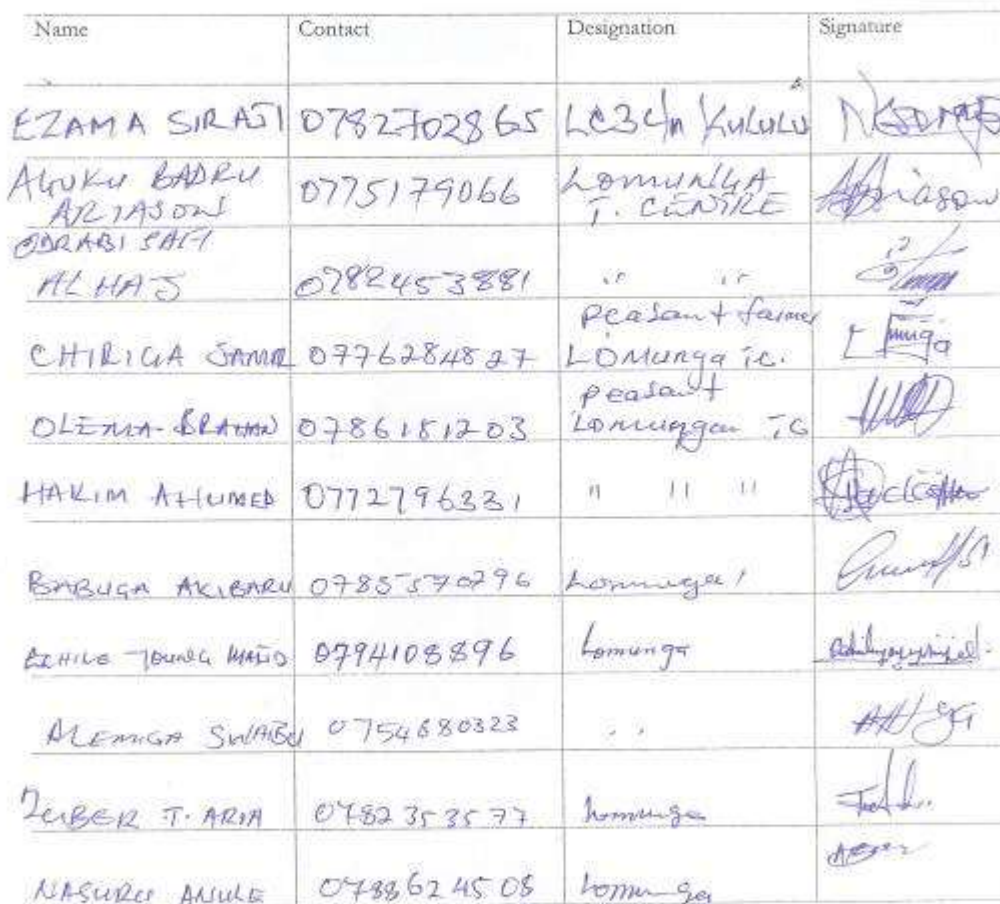 Name Contact Designation Signature
EZAMA SIRAJI 0782702865 LC3 C/n KULULU
AGUKU BADRU
ARIASON 0775179066 LOMUNGA
T. CENTRE
ODRABI SAFI
AL HAJ 0782453881 " "
CHIRIGA JAMAL 0776284827 peasant farmer
LOMUNGA T.C.
OLEMA 0786181203 peasant
Lomunga TC
HAKIM AHUMED 0772796331 " " "
BABUGA AKIBARU 0785570296 Lomunga
YOUNG 0794108896 Lomunga
ALEMIGA SWABU 0754680323 " "
ZUBER T. ARIA 0782353577 Lomunga
NASURU ANULE 0788624508 Lomunga